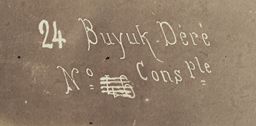 24 Buyuk-Déré
Nº Cons Ple